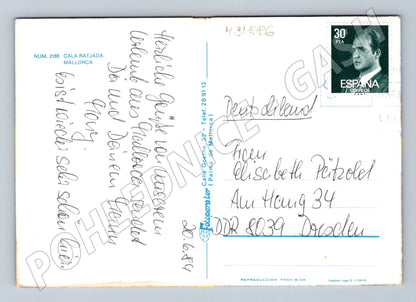 NUM. 2185 CALA RATJADA
MALLORCA
Herzliche Grüße von unserem
Urlaub aus Mallorca sendet
Dir und Deinem Mann
es ist wieder sehr schön hier
20.6.84
Fotocolor
Calle Goethe, 22 - Telef. 28 91 13
(Palma de Mallorca)
30
PTA
ESPAÑA
CORREOS
Deutschland
Elisabeth Pätzold
Am Hang 34
DDR 8039 Dresden
REPRODUCCION PROHIBIDA
POHLEDNICE - GASH